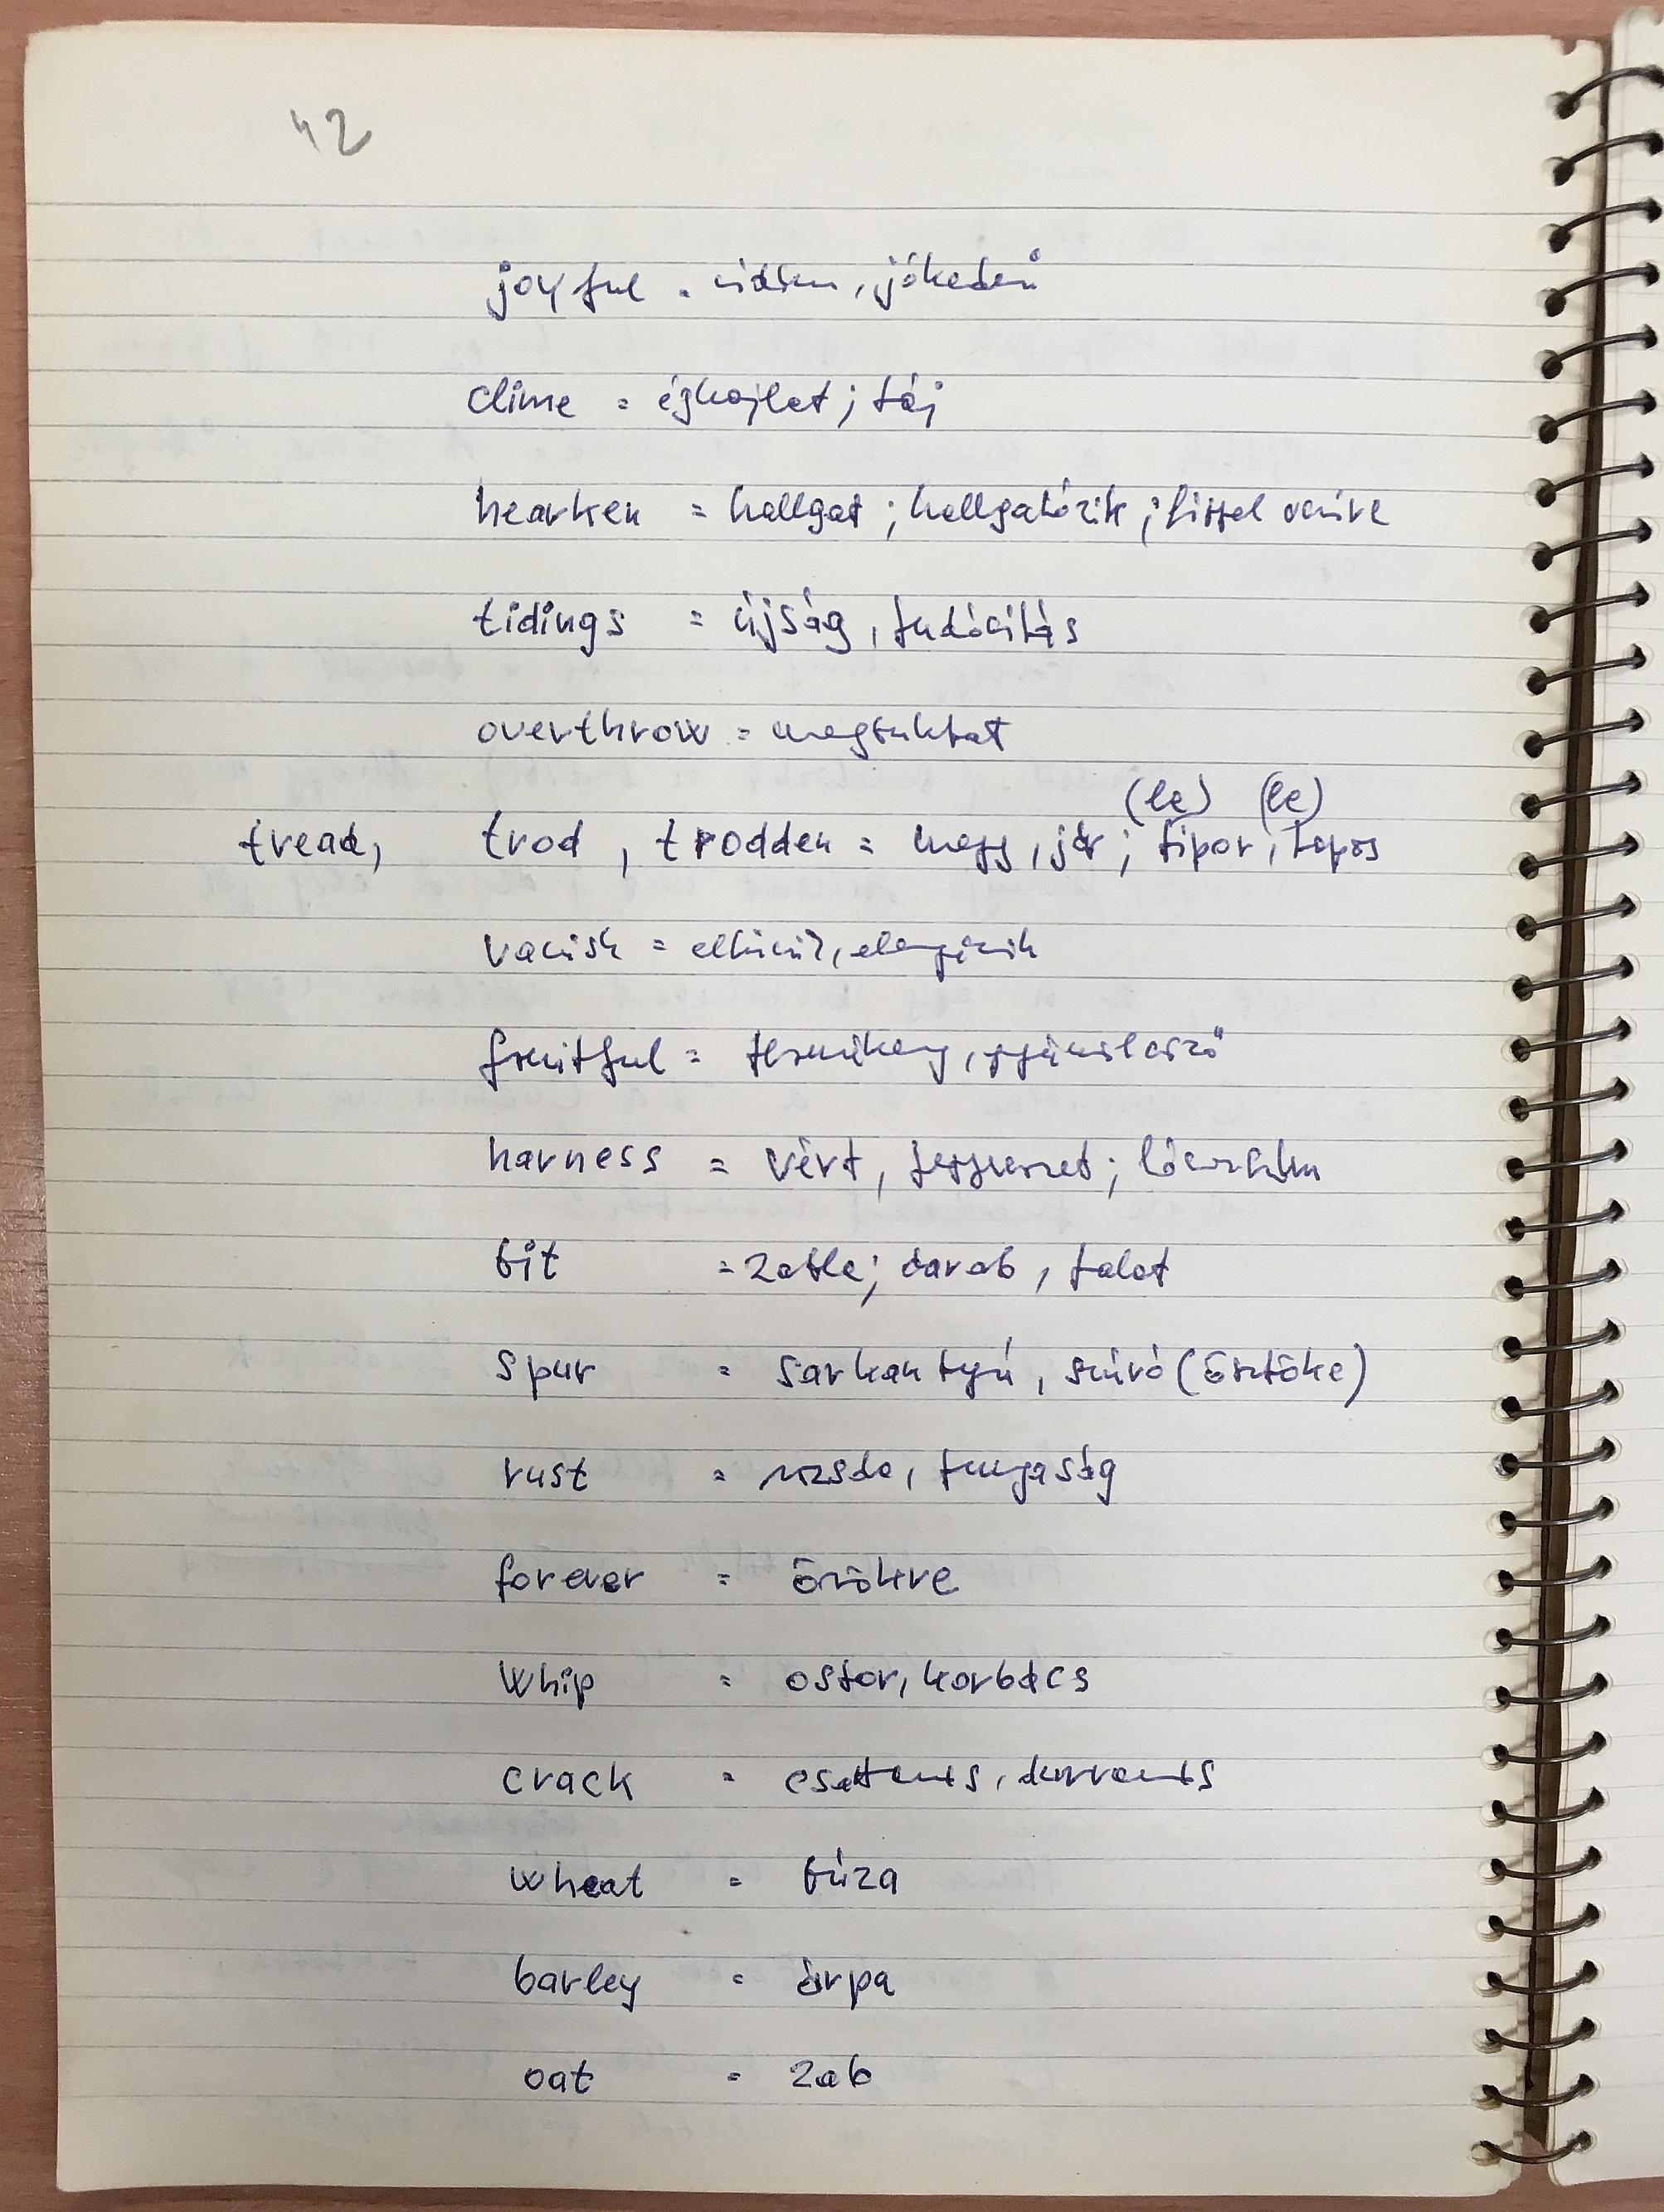 42
joyful = vidám, jókedvű
clime = éghajlat; táj
hearken = hallgat; hallgatózik; 
tidings = újság, tudósítás
overthrow = megbuktat
(le) (le)
tread, trod, trodden = megy, jár; tipor, tapos
vanish = eltűnik, elenyészik
fruitful = termékeny, gyümölcsöző
harness = vért, fegyverzet; lószerszám
bit = zabla; darab, falat
spur = sarkantyú, szúró (ösztöke)
rust = rozsda, 
forever = örökre
whip = ostor, korbács
crack = csattanás, durranás
wheat = búza
barley = árpa
oat = zab